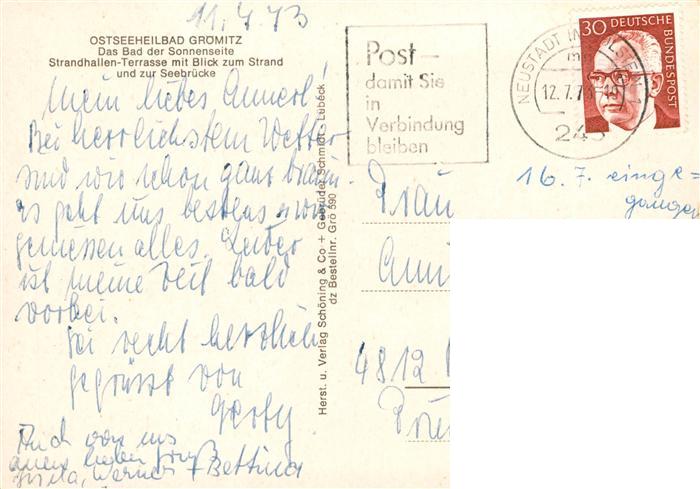 11.7.73
OSTSEEHEILBAD GRÖMITZ
Das Bad der Sonnenseite
Strandhallen-Terrasse mit Blick zum Strand
und zur Seebrücke
Mein liebes Annerl!
Bei herrlichstem Wetter
sind wir schon ganz braun.
es geht uns bestens u. wir
geniessen alles. Leider
ist meine Zeit bald
vorbei.
Sei recht herzlich
gegrüsst von
Gerty
Auch von uns
einen lieben Gruß
Werner + Bettina
Herst. u. Verlag Schöning & Co + Gebrüder Schmidt - Lübeck
dz Bestellnr. Grö 590
Post –
damit Sie
in
Verbindung
bleiben
NEUSTADT IN HOLSTEIN 1
12.7.73
243
30 DEUTSCHE
BUNDESPOST
16.7. einge=
gangen
Frau
4812